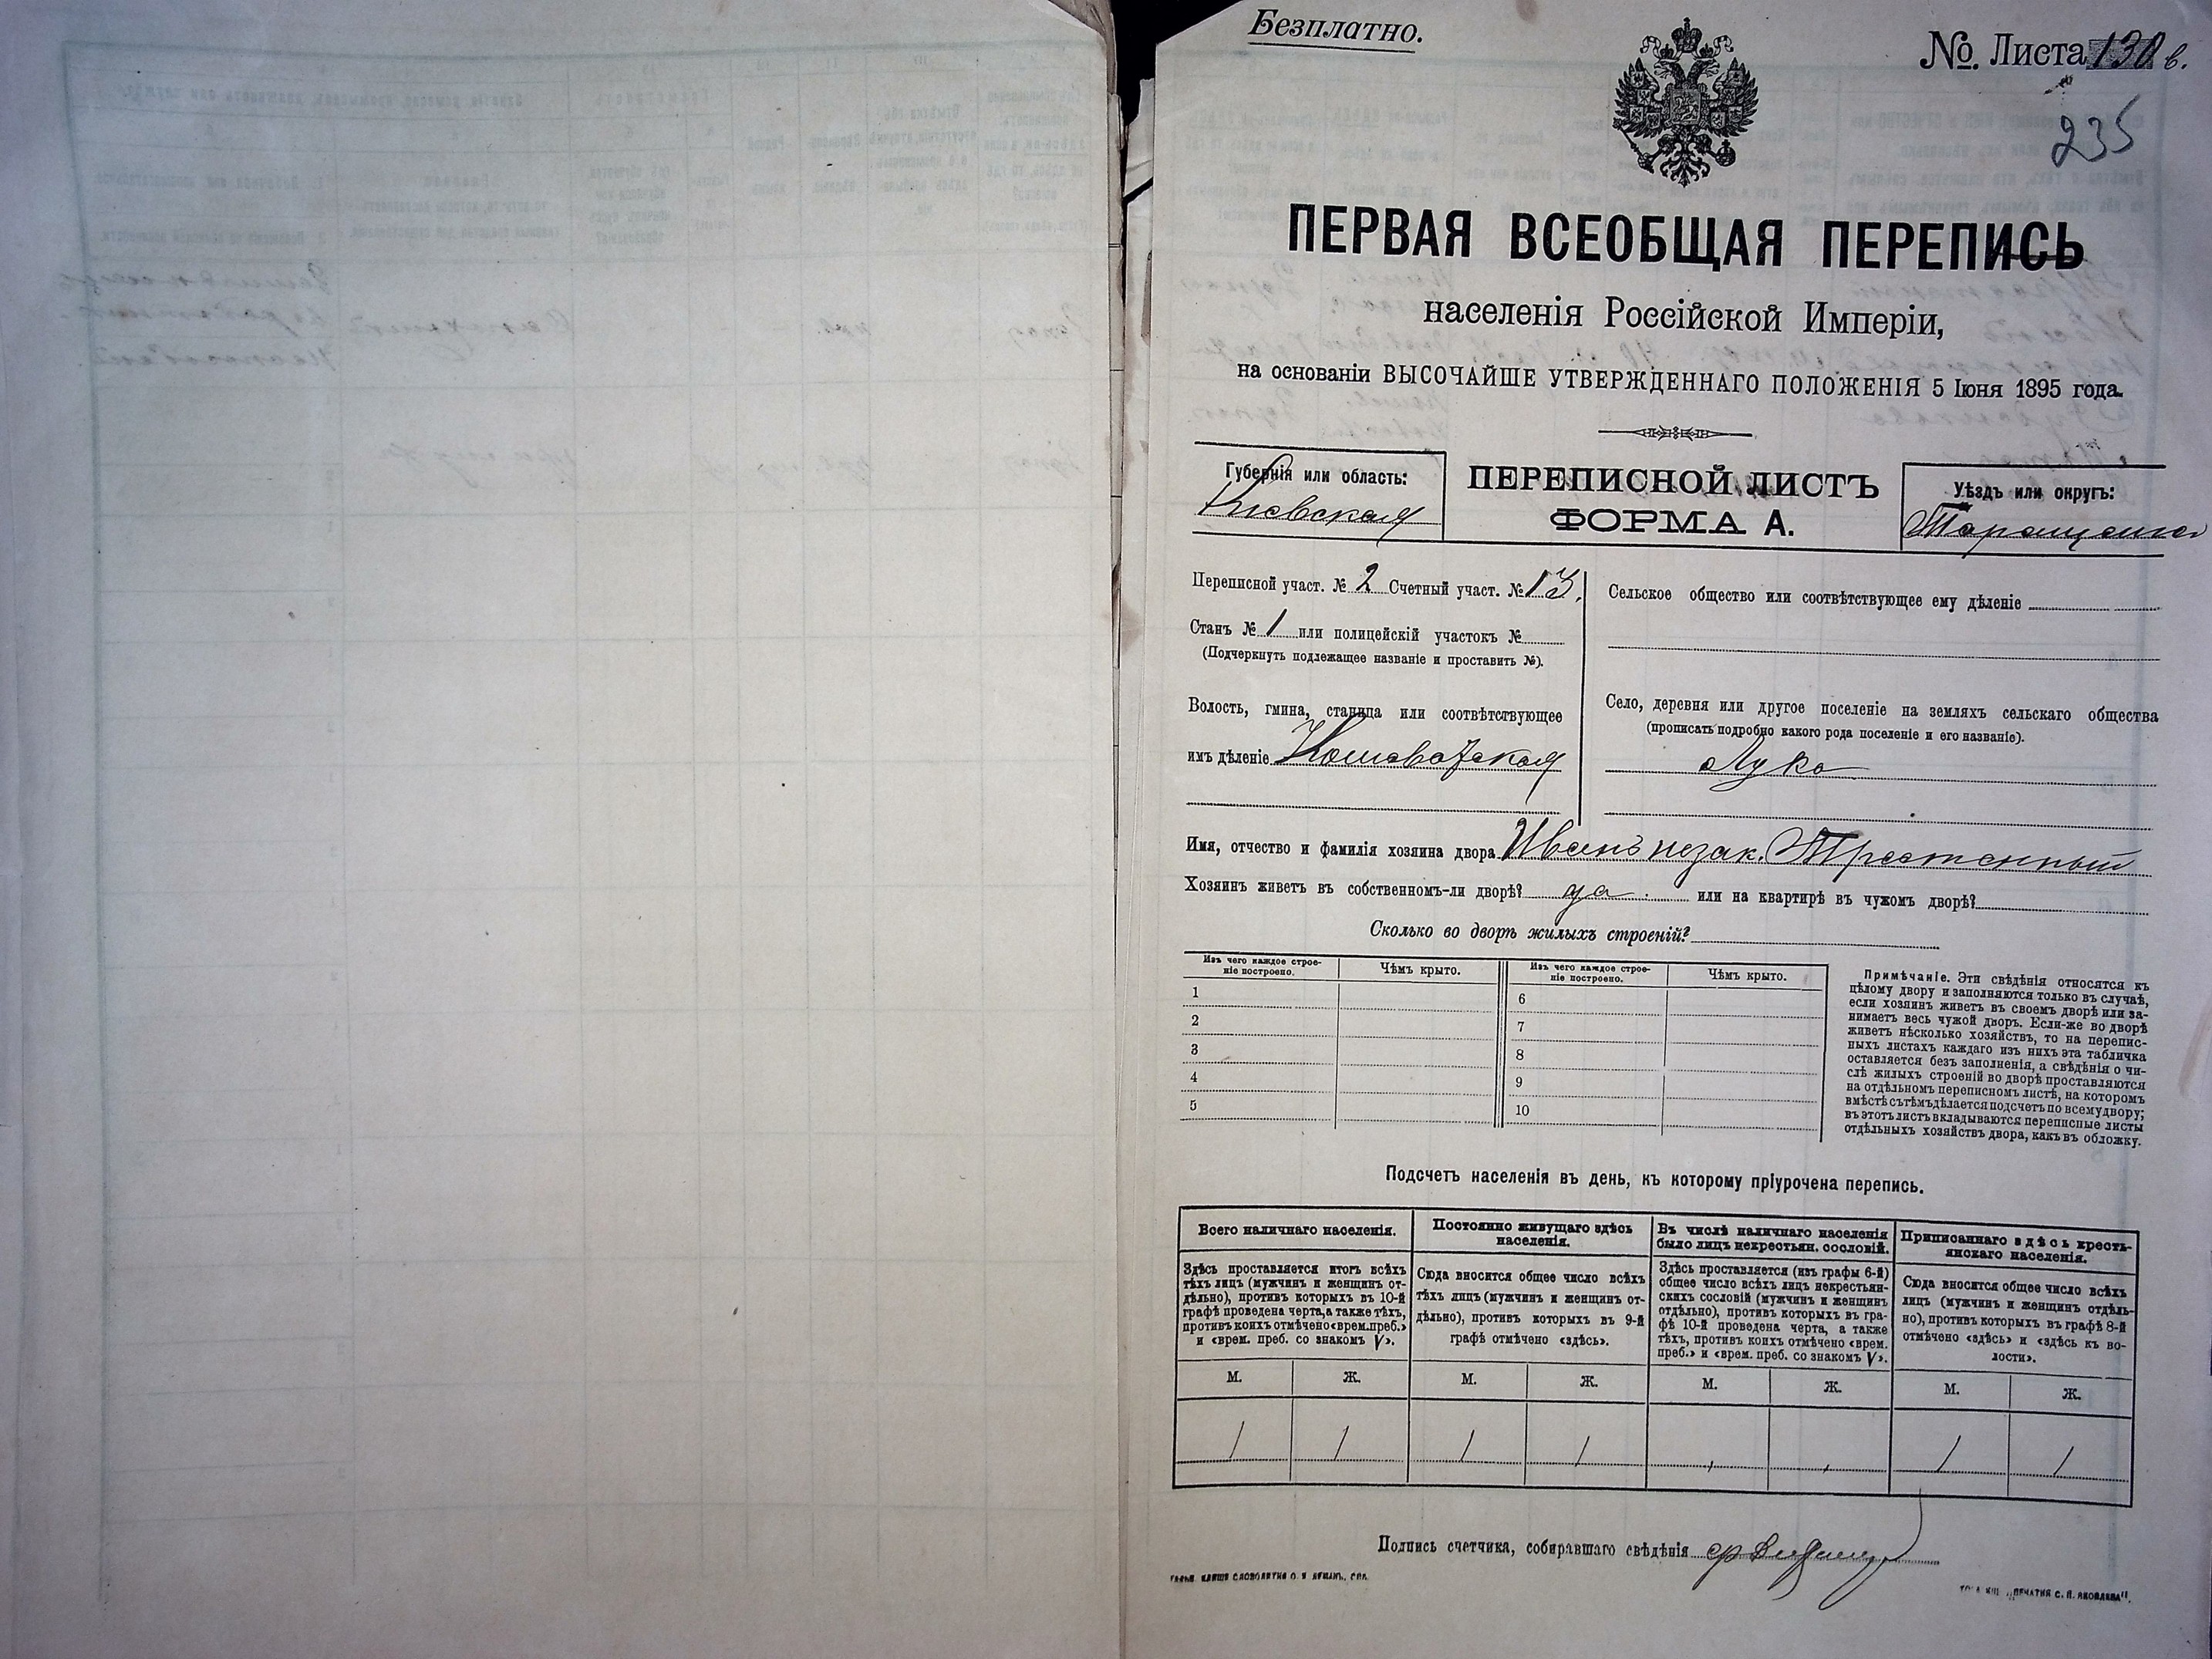 Безплатно.
№ Листа 130 в.
235
ПЕРВАЯ ВСЕОБЩАЯ ПЕРЕПИСЬ
населенія Россійской Имперіи,
на основаніи ВЫСОЧАЙШЕ УТВЕРЖДЕННАГО ПОЛОЖЕНІЯ 5 Іюня 1895 года.
Губернія или область:
Кіевская
ПЕРЕПИСНОЙ ЛИСТЪ
ФОРМА А.
Уѣздъ или округъ:
Переписной участ. № 2 Счетный участ. № 13.
Станъ № 1 или полицейскій участокъ №
(Подчеркнуть подлежащее названіе и проставить №).
Волость, гмина, станица или соотвѣтствующее
имъ дѣленіе Кошеватская
Сельское общество или соотвѣтствующее ему дѣленіе
Село, деревня или другое поселеніе на земляхъ сельскаго общества
(прописать подробно какого рода поселеніе и его названіе).
Лука
Имя, отчество и фамилія хозяина двора Ивенъ незак.
Хозяинъ живетъ въ собственномъ-ли дворѣ? да. или на квартирѣ въ чужомъ дворѣ?
Сколько во дворѣ жилыхъ строеній?
Изъ чего каждое строе-
ніе построено.
Чѣмъ крыто.
Изъ чего каждое строе-
ніе построено.
Чѣмъ крыто.
1
2
3
4
5
6
7
8
9
10
Примѣчаніе. Эти свѣдѣнія относятся къ
цѣлому двору и заполняются только въ случаѣ,
если хозяинъ живетъ въ своемъ дворѣ или за-
нимаетъ весь чужой дворъ. Если-же во дворѣ
живетъ нѣсколько хозяйствъ, то на перепис-
ныхъ листахъ каждаго изъ нихъ эта табличка
оставляется безъ заполненія, а свѣдѣнія о чи-
слѣ жилыхъ строеній во дворѣ проставляются
на отдѣльномъ переписномъ листѣ, на которомъ
вмѣстѣ съ тѣмъ дѣлается подсчетъ по всему двору;
въ этотъ листъ вкладываются переписные листы
отдѣльныхъ хозяйствъ двора, какъ въ обложку.
Подсчетъ населенія въ день, къ которому пріурочена перепись.
Всего наличнаго населенія.
Здѣсь проставляется итогъ всѣхъ
тѣхъ лицъ (мужчинъ и женщинъ от-
дѣльно), противъ которыхъ въ 10-й
графѣ проведена черта, а также тѣхъ,
противъ коихъ отмѣчено «врем. преб.»
и «врем. преб. со знакомъ V».
Постоянно живущаго здѣсь
населенія.
Сюда вносится общее число всѣхъ
тѣхъ лицъ (мужчинъ и женщинъ от-
дѣльно), противъ которыхъ въ 9-й
графѣ отмѣчено «здѣсь».
Въ числѣ наличнаго населенія
было лицъ некрестьян. сословій.
Здѣсь проставляется (изъ графы 6-й)
общее число всѣхъ лицъ некрестьян-
скихъ сословій (мужчинъ и женщинъ
отдѣльно), противъ которыхъ въ гра-
фѣ 10-й проведена черта, а также
тѣхъ, противъ коихъ отмѣчено «врем.
преб.» и «врем. преб. со знакомъ V».
Приписаннаго здѣсь кресть-
янскаго населенія.
Сюда вносится общее число всѣхъ
лицъ (мужчинъ и женщинъ отдѣль-
но), противъ которыхъ въ графѣ 8-й
отмѣчено «здѣсь» и «здѣсь къ во-
лости».
М. Ж. М. Ж. М. Ж. М. Ж.
1 1 1 1 1 1
Подпись счетчика, собиравшаго свѣдѣнія